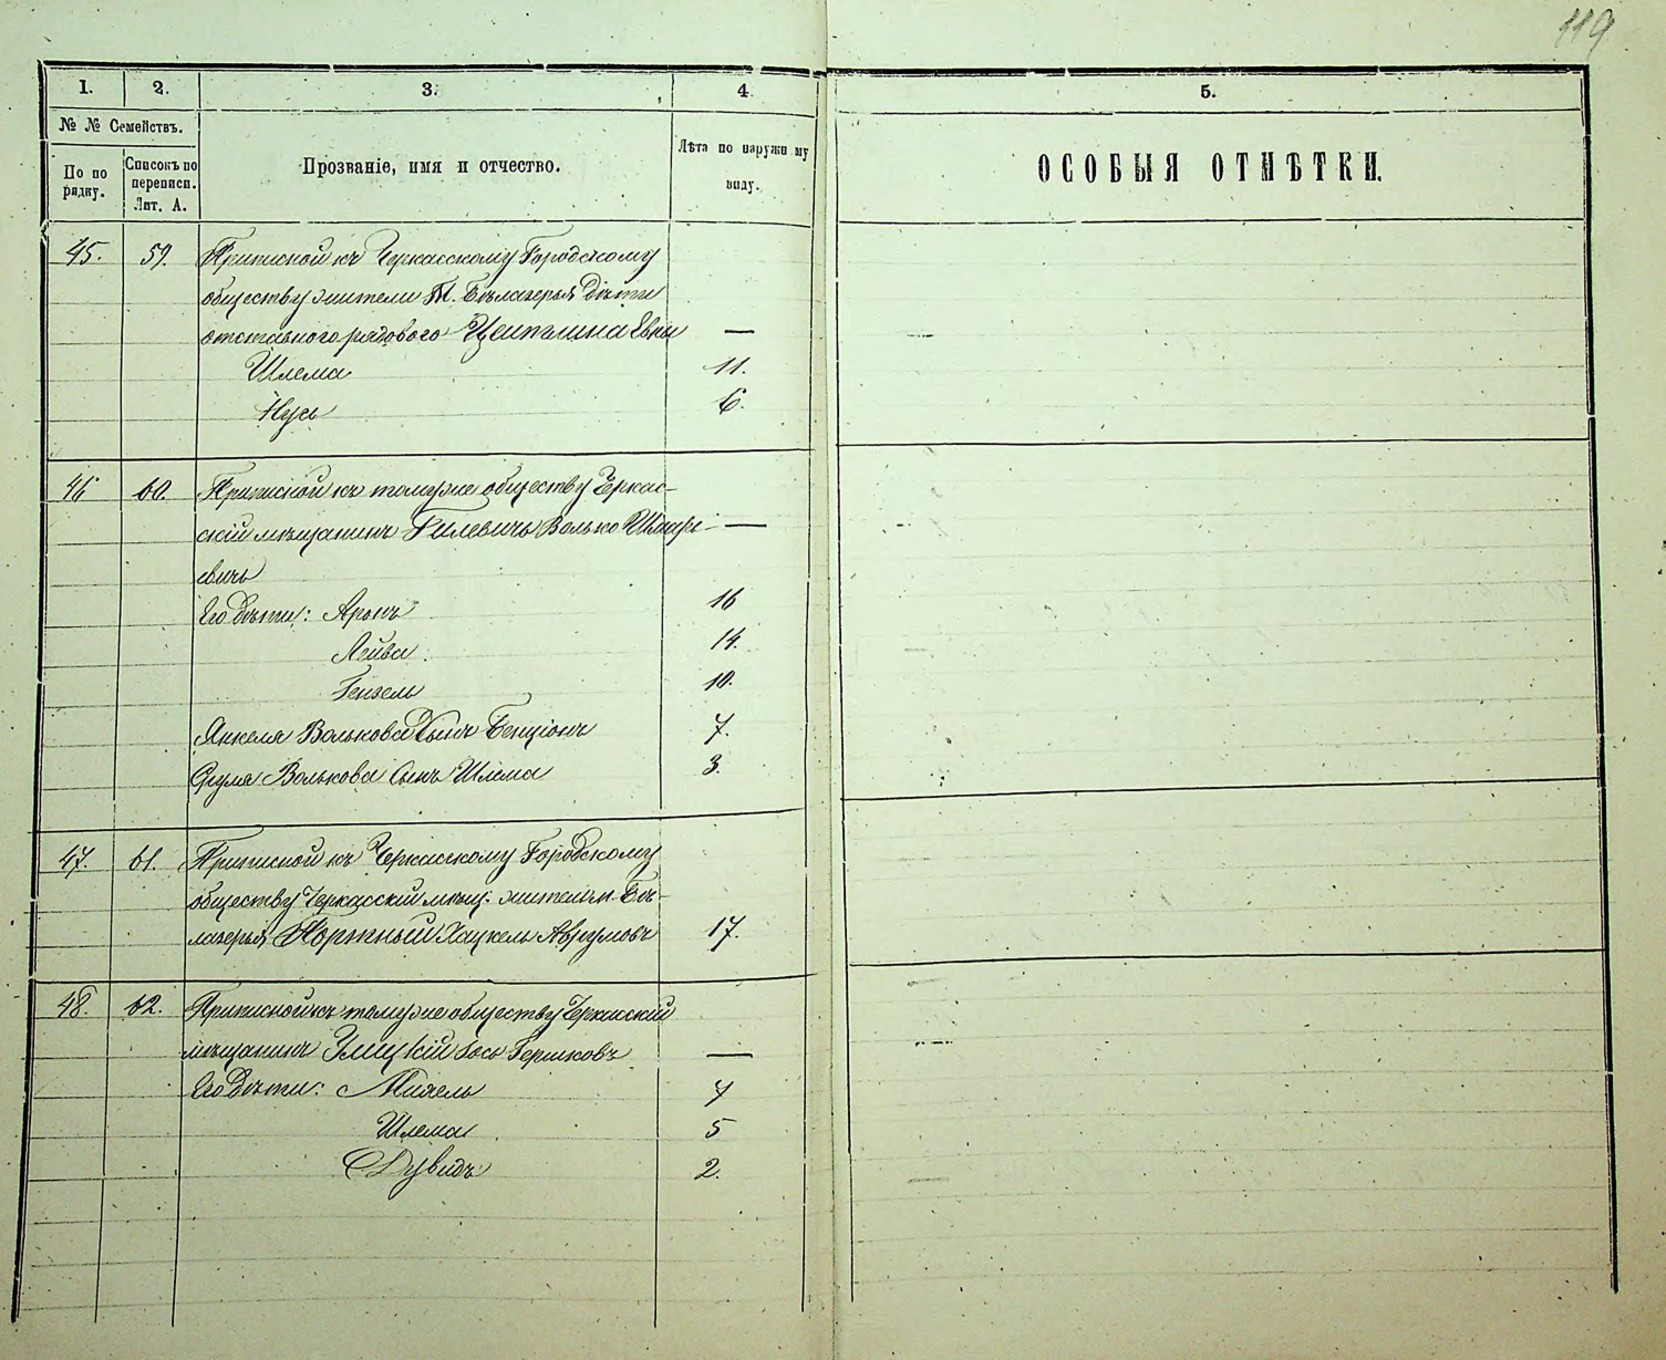 119
1. 2. 3. 4 5.
№ № Семействъ.
По по рядку.
Списокъ по переписи. Лит. А.
Прозваніе, имя и отчество.
Лѣта по наружн му виду.
ОСОБЫЯ ОТМѢТКИ.
45. 59. Приписной къ Черкасскому Городскому
обществу жители М. Бѣлазерья дѣти
отставного рядового Цейтлина Евны —
Шлема 11.
Нусь 6.
46 60. Приписной къ томуже обществу Черкас-
скій мѣщанинъ Гилевичъ Волько —
евичъ
Его дѣти: Аронъ 16
Лейба. 14.
Гензель 10.
Янкеля Волькова Сынъ Бенціонъ 7.
Срумя Волькова Сынъ Шлема 3.
47. 61. Приписной къ Черкасскому Городскому
обществу Черкасский мѣщ: житель м. Бѣ-
лазерья Коржный Хацкель Аврумовъ 17.
48. 62. Приписной къ томуже обществу Черкасскій
мѣщанинъ Злицкій Іось Гершковъ —
Его дѣти: Михель 7
Шлема 5
Дувидъ 2.